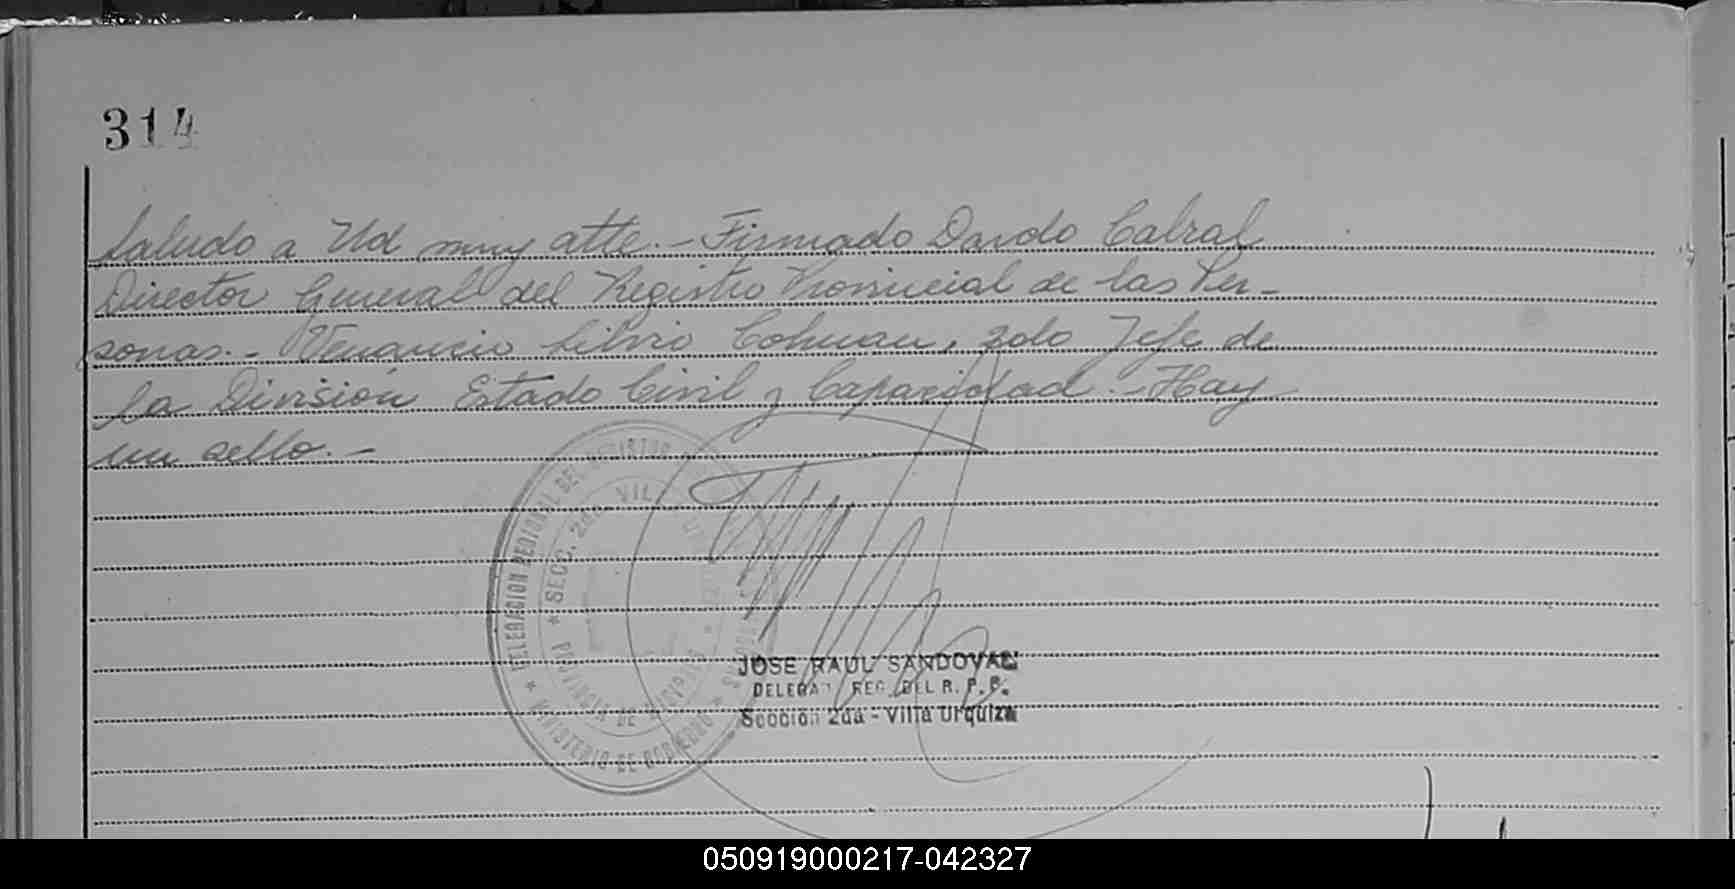 314
Saludo a Ud muy atte.- Firmado Dardo Cabral
Director General del Registro Provincial de las Per-
sonas.- Venancio Silvio Colman, 2do Jefe de
la División Estado Civil y Capacidad.- Hay
un sello.-
DELEGACION REGIONAL DEL REGISTRO
SECC. 2da. VILLA
PROVINCIA DE
MINISTERIO DE GOBIERNO
JOSE RAUL SANDOVAL
DELEGAD REG. DEL R. P. P.
Sección 2da - Villa Urquiza
050919000217-042327